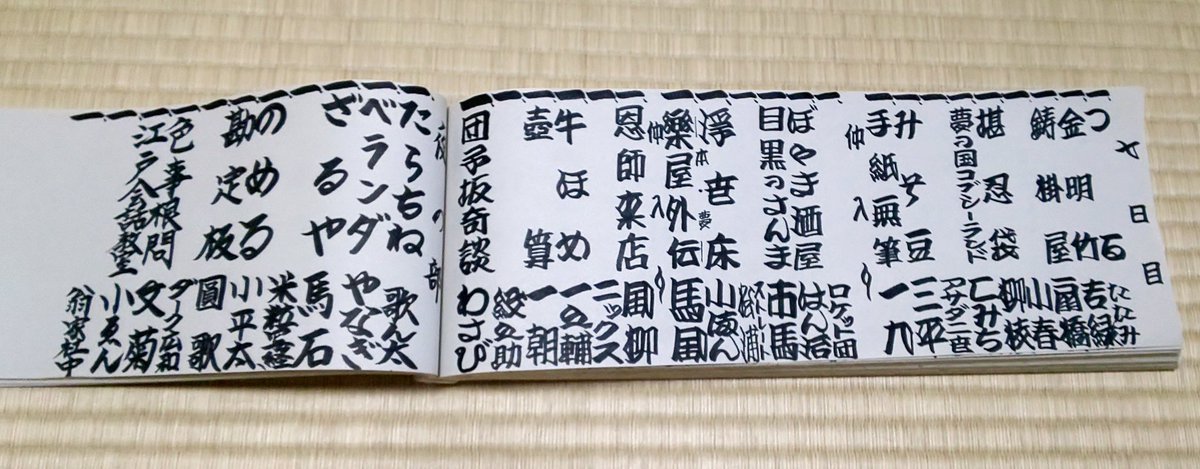 七日目
つる 吉緑
金明竹 扇橋
鋳掛屋
柳枝
堪忍袋
夢の国コブシーランド
アサダ二世
豆 三平
手紙無筆 一九
仲入り
ロケット団
ぼやき酒屋 はん治
目黒のさんま 市馬
ストレート松浦
浮世床 本・夢 小満ん
楽屋外伝 馬風
仲入り
恩師来店
ニックス
牛ほめ 一之輔
壺算 一朝
紋之助
団子坂奇談 わさび
夜の部
たらちね 歌ん太
ベランダ やなぎ
ざるや 馬石
米粒写経
のめる 小平太
勘定板 圓歌
ダーク広和
色事根問 文菊
江戸会話教室 小ゑん
翁家社中